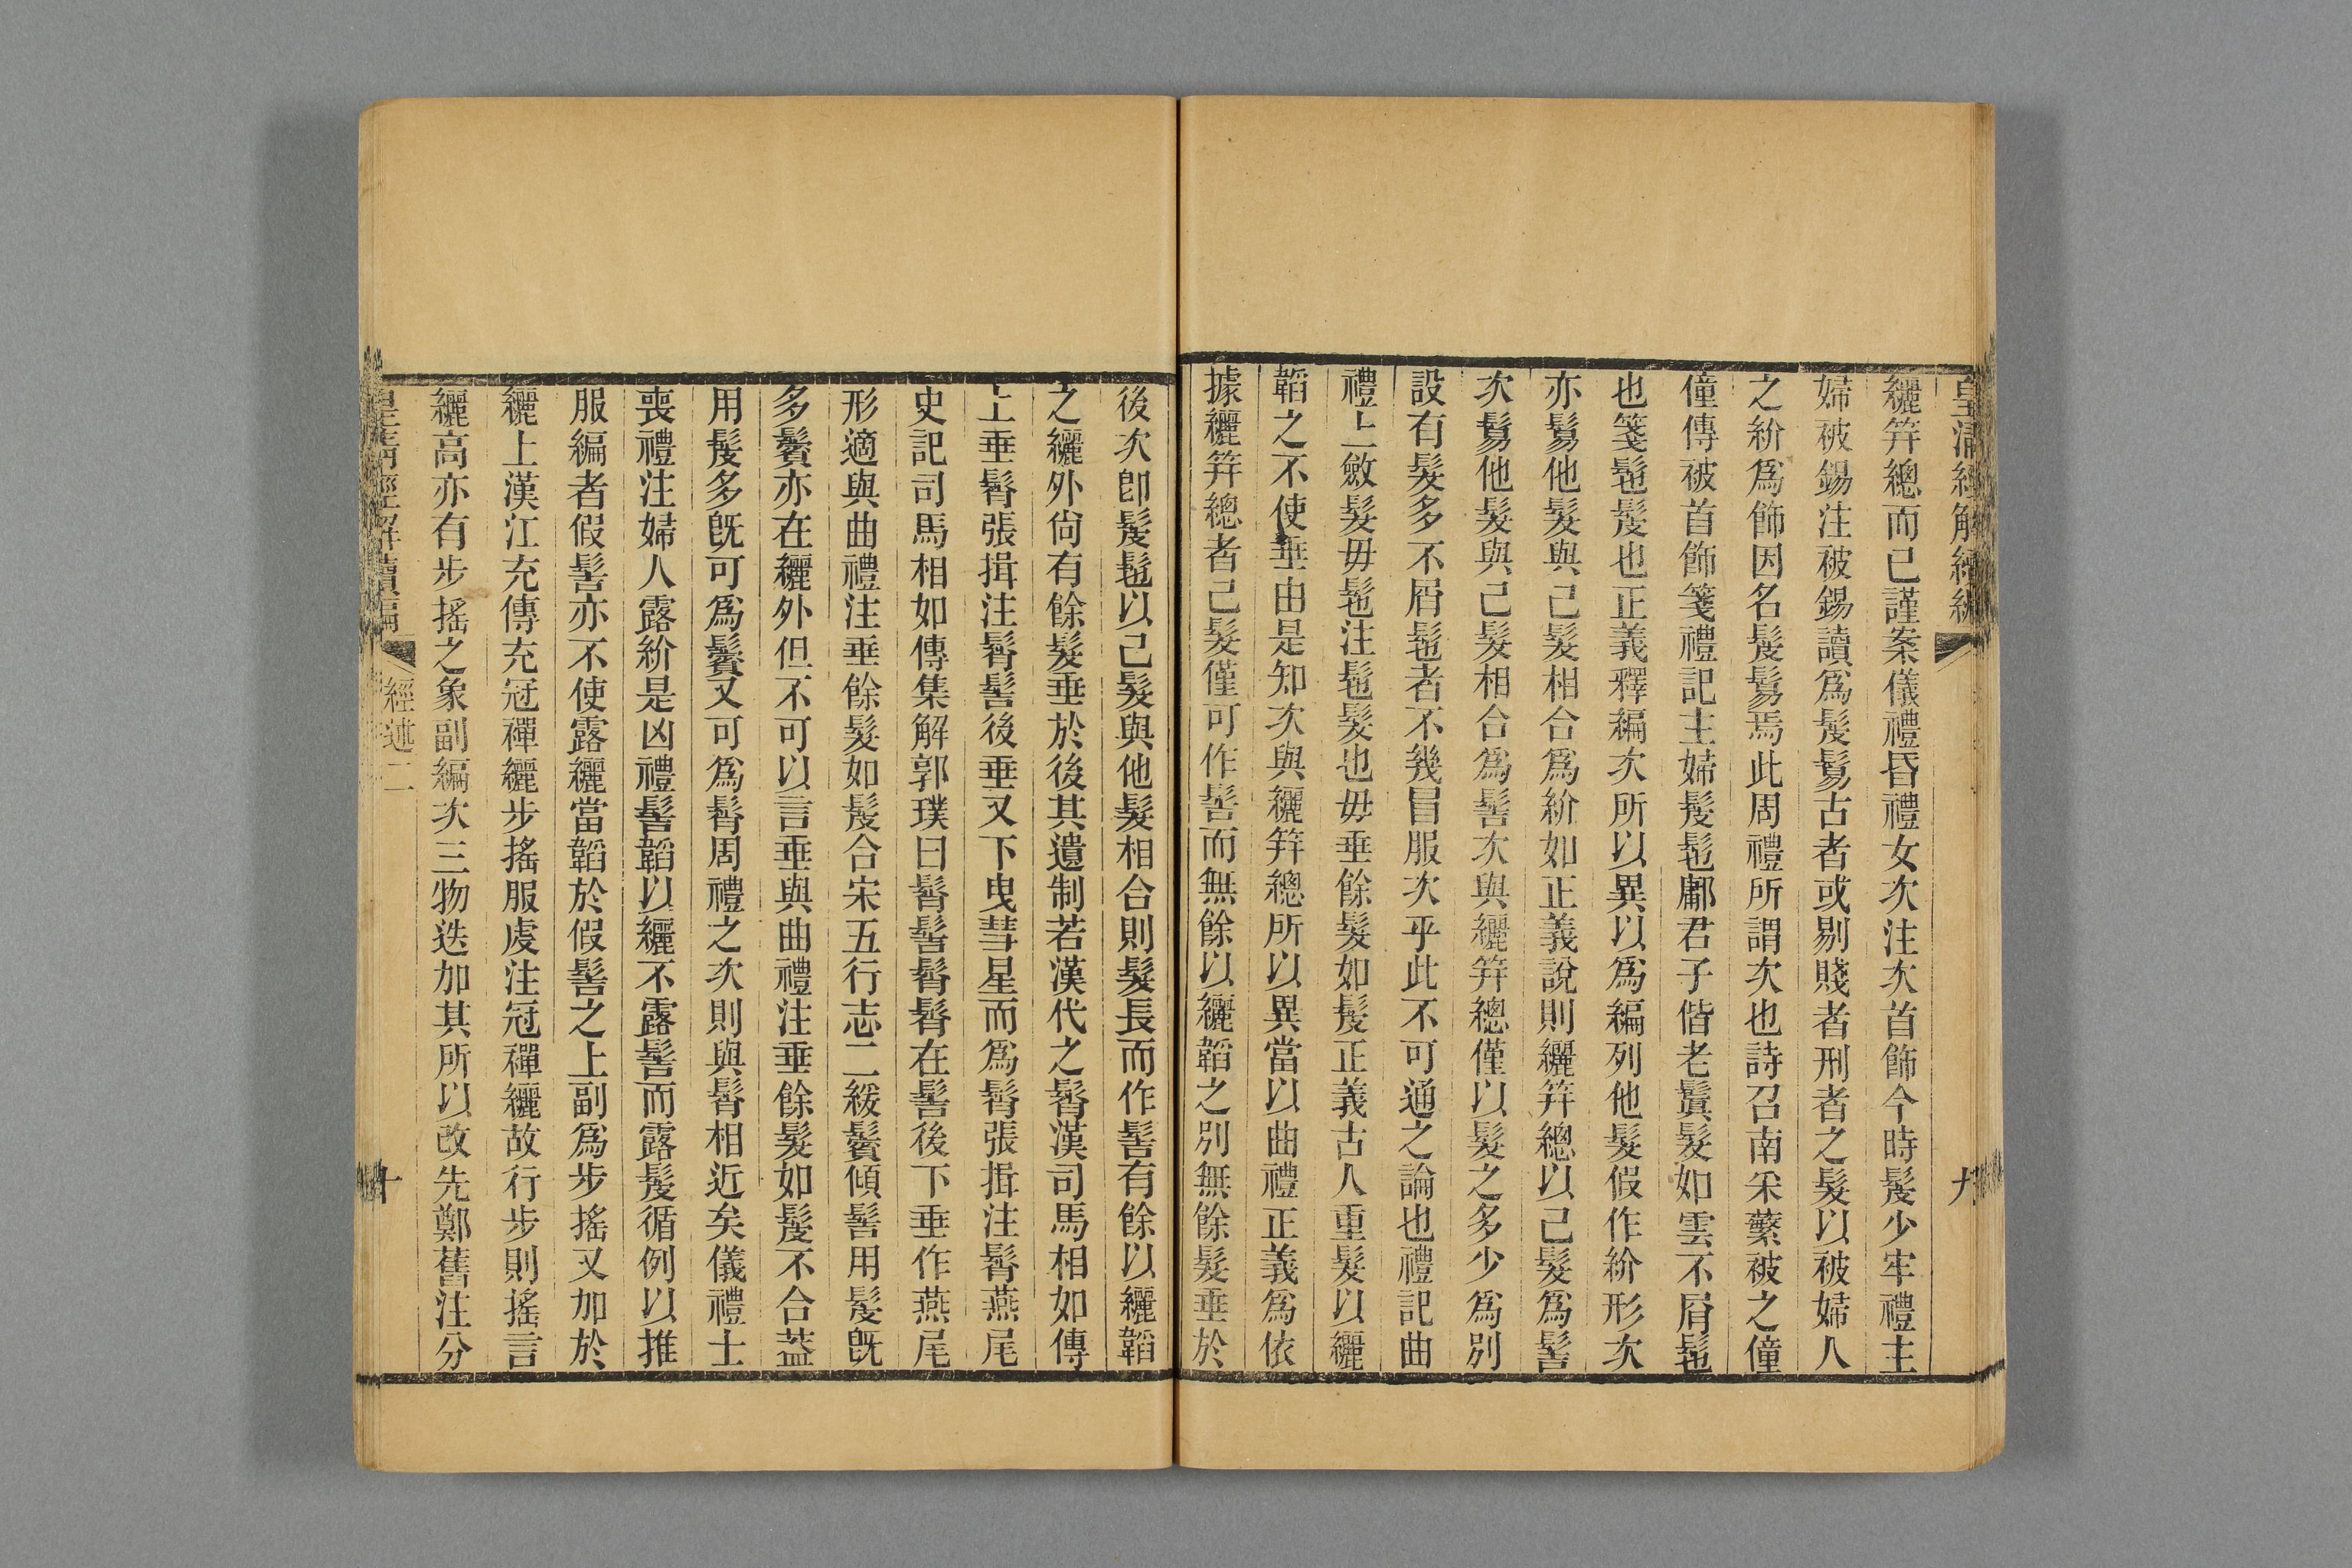 皇清經解續編
九
纚笄總而已謹案儀禮昏禮女次注次首飾今時髲少牢禮主
婦被錫注被錫讀爲髲鬄古者或剔賤者刑者之髮以被婦人
之紒爲飾因名髲鬄焉此周禮所謂次也詩召南采蘩被之僮
僮傳被首飾箋禮記主婦髲髢鄘君子偕老鬒髮如雲不屑髢
也箋髢髲也正義釋編次所以異以爲編列他髮假作紒形次
亦鬄他髮與己髮相合爲紒如正義說則纚笄總以己髮爲髻
次鬄他髮與己髮相合爲髻次與纚笄總僅以髮之多少爲別
設有髮多不屑髢者不幾冒服次乎此不可通之論也禮記曲
禮上斂髮毋髢注髢髮也毋垂餘髮如髲正義古人重髮以纚
韜之不使垂由是知次與纚笄總所以異當以曲禮正義爲依
據纚笄總者己髮僅可作髻而無餘以纚韜之別無餘髮垂於
後次卽髲髢以己髮與他髮相合則髮長而作髻有餘以纚韜
之纚外尙有餘髮垂於後其遺制若漢代之髾漢司馬相如傳
上垂髾張揖注髾髻後垂又下曳彗星而爲髾張揖注髾燕尾
史記司馬相如傳集解郭璞曰髾髻髾髾在髻後下垂作燕尾
形適與曲禮注垂餘髮如髲合宋五行志二緩鬢傾髻用髲旣
多鬢亦在纚外但不可以言垂與曲禮注垂餘髮如髲不合葢
用髲多旣可爲鬢又可爲髾周禮之次則與髾相近矣儀禮士
喪禮注婦人露紒是凶禮髻韜以纚不露髻而露髮循例以推
服編者假髻亦不使露纚當韜於假髻之上副爲步搖又加於
纚上漢江充傳充冠襌纚步搖服虔注冠襌纚故行步則搖言
纚高亦有步搖之象副編次三物迭加其所以改先鄭舊注分
皇清經解續編
經述二
十